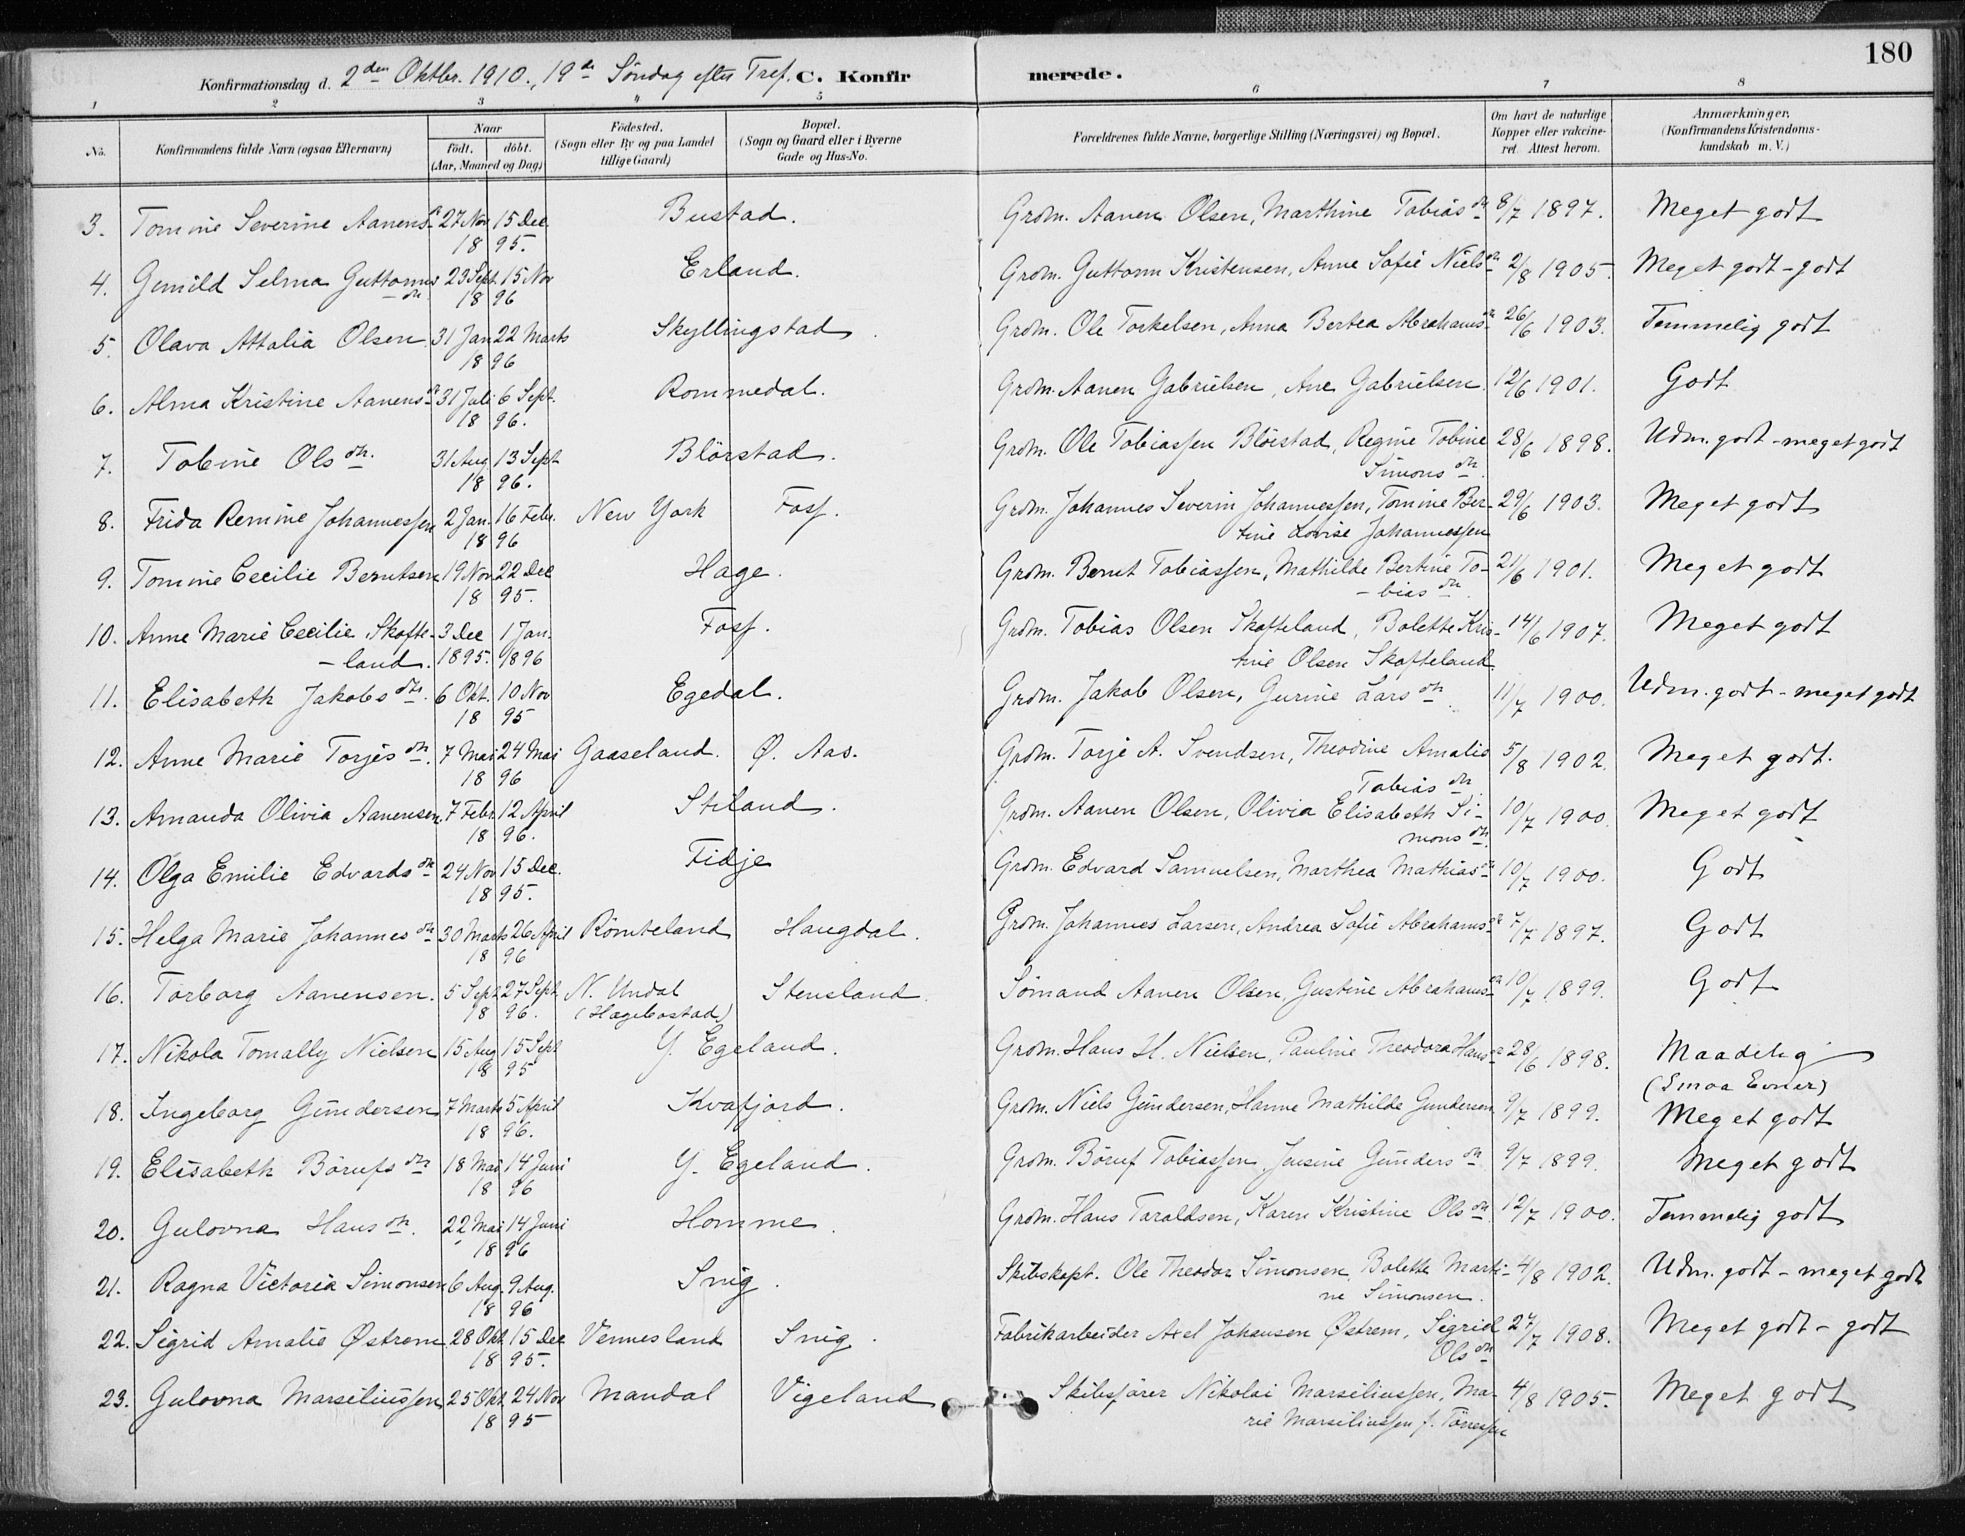 180
Konfirmationsdag d. 2den Oktbr. 1910., 19de Söndag efter Tref. C. Konfirmerede.
1 2 3 4 5 6 7 8
No. Konfirmandens fulde Navn (ogsaa Efternavn) Naar födt. döbt. (Aar, Maaned og Dag) Födested. (Sogn eller By og paa Landet tillige Gaard) Bopæl. (Sogn og Gaard eller i Byerne Gade og Hus-No. Forældrenes fulde Navne, borgerlige Stilling (Næringsvei) og Bopæl. Om havt de naturlige Kopper eller vakcineret. Attest herom. Anmærkninger. (Konfirmandens Kristendomskundskab m. V.)
3. Tomine Severine Aanensd. 27 Nov 15 Dec. Bustad. Grdm. Aanen Olsen, Marthine Tobiasdtr 8/7 1897. Meget godt
1895.
4. Gunild Selma Guttorms 23 Sept. 15 Nov Erland. Grdm. Guttorm Kristensen, Anne Sofie Nielsdtr 2/8 1905. Meget godt - godt
- dtr. 1896
5. Olava Attalia Olsen 31 Jan 22 Marts Skyllingstad. Grdm. Ole Torkelsen, Anna Bertea Abrahamsdtr 26/6 1903. Temmelig godt
1896
6. Alma Kristine Aanensd. 31 Juli 6 Sept. Rommedal. Grdm. Aanen Gabrielsen, Ane Gabrielsen 12/6 1901. Godt
1896.
7. Tobine Olsdtr. 31 Aug 13 Sept Blörstad. Grdm. Ole Tobiassen Blörstad, Regine Tobine 28/6 1898. Udm. godt - meget godt
1896. Simonsdtr.
8. Frida Remine Johannessen 2 Jan. 16 Febr. New York Foss. Grdm. Johannes Severin Johannessen, Tomine Ber- 29/6 1903. Meget godt
1896 tine Lovise Johannessen
9. Tomine Cecilie Berntsen 19 Nov 22 Dec Hage. Grdm. Bernt Tobiassen, Mathilde Bertine To- 21/6 1901. Meget godt
1895. - biasdtr.
10. Anne Marie Cecilie Skofte- 3 Dec 1 Jan. Foss. Grdm. Tobias Olsen Skofteland, Bolette Kris- 14/6 1907. Meget godt
- land. 1895. 1896 tine Olsen Skofteland.
11. Elisabeth Jakobsdtr. 6 Okt. 10 Nov Egedal. Grdm. Jakob Olsen, Gurine Larsdtr. 11/7 1900. Udm. godt - meget godt
1895
12. Anne Marie Torjesdtr. 7 Mai 24 Mai Gaaseland. Ø. Aas. Grdm. Torje A. Svendsen, Theodine Amalie 5/8 1902. Meget godt.
1896 Tobiasdtr.
13. Amanda Olivia Aanensen 7 Febr. 12 April Stiland. Grdm. Aanen Olsen, Olivia Elisabeth Si- 10/7 1900. Meget godt
1896. monsdtr.
14. Olga Emilie Edvardsdtr 24 Nov 15 Dec. Fidje Grdm. Edvard Samuelsen, Marthea Mathiasdtr 10/7 1900. Godt
1895.
15. Helga Marie Johannesdtr 30 Marts 26 April Römteland Haugdal. Grdm. Johannes Larsen, Andrea Sofie Abrahamsdtr 7/7 1897. Godt
1896
16. Torborg Aanensen. 5 Sept. 27 Sept. N. Undal Stensland. Sömand Aanen Olsen, Gustine Abrahamsdtr 10/7 1899. Godt
1896. (Hægebostad)
17. Nikola Tomally Nielsen 15 Aug 15 Sept Y. Egeland. Grdm. Hans H. Nielsen, Pauline Theodora Hansdtr 28/6 1898. Maadelig
1895 (Smaa Evner)
18. Ingeborg Gundersen 7 Marts 5 April Kvafjord. Grdm. Niels Gundersen, Hanne Mathilde Gundersen 9/7 1899. Meget godt
1896.
19. Elisabeth Börufsdtr 18 Mai 14 Juni Y. Egeland. Grdm. Böruf Tobiassen, Jensine Gundersdtr 9/7 1899. Meget godt
1896
20. Gulovna Hansdtr. 22 Mai 14 Juni Homme. Grdm. Hans Taraldsen, Karen Kristine Olsdtr. 12/7 1900. Temmelig godt
1896
21. Ragna Victoria Simonsen 6 Aug. 9 Aug. Snig. Skibskapt. Ole Theodor Simonsen, Bolette Marti- 4/8 1902. Udm. godt - meget godt
1896 ne Simonsen.
22. Sigrid Amalie Østrem 28 Okt. 15 Dec Vennesland Snig. Fabrikarbeider Axel Johansen Østrem, Sigrid 27/7 1908. Meget godt - godt
1895. Olsdtr
23. Gulovna Marseliussen 25 Okt. 24 Nov Mandal Vigeland Skibsfører Nikolai Marseliussen, Ma- 4/8 1905. Meget godt
1895 rie Marseliussen f. Tönnessen